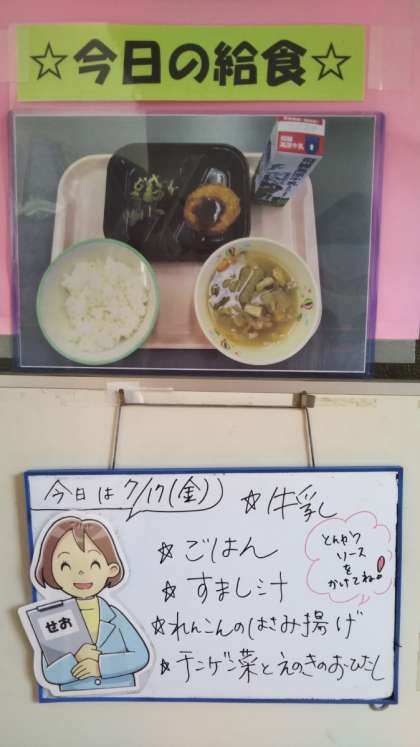 ☆今日の給食☆
今日は 7/17(金)
☆牛乳
☆ごはん
☆すまし汁
☆れんこんのはさみ揚げ
☆チンゲン菜とえのきのおひたし
とんかつ
ソース
を
かけてね!
せお